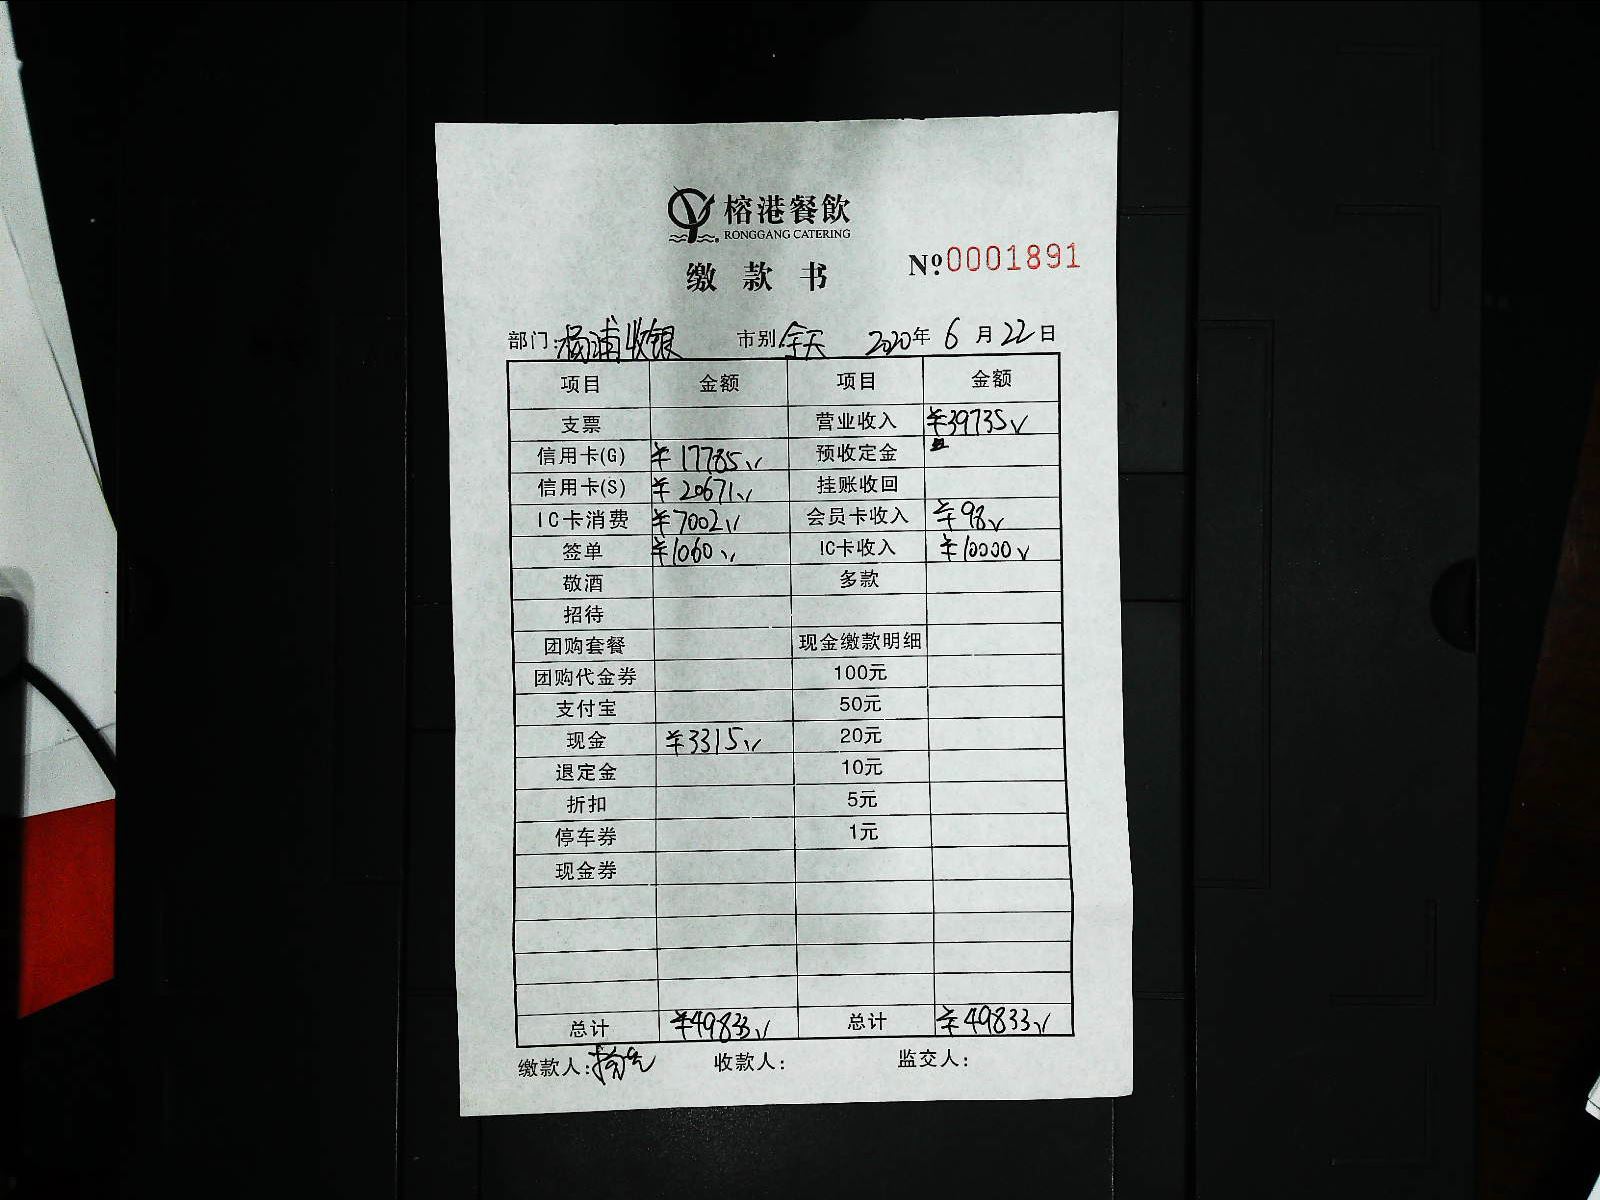 榕港餐飲
RONGGANG CATERING
缴款书
№0001891
部门:杨浦收银 市别 全天 2020年6月22日
项目 金额 项目 金额
支票 营业收入 ¥39735
信用卡(G) ¥17785 预收定金
信用卡(S) ¥20671 挂账收回
IC卡消费 ¥7002 会员卡收入 ¥98
签单 ¥1060 IC卡收入 ¥10000
敬酒 多款
招待
团购套餐 现金缴款明细
团购代金券 100元
支付宝 50元
现金 ¥3315 20元
退定金 10元
折扣 5元
停车券 1元
现金券
总计 ¥49833 总计 ¥49833
缴款人: 收款人: 监交人: